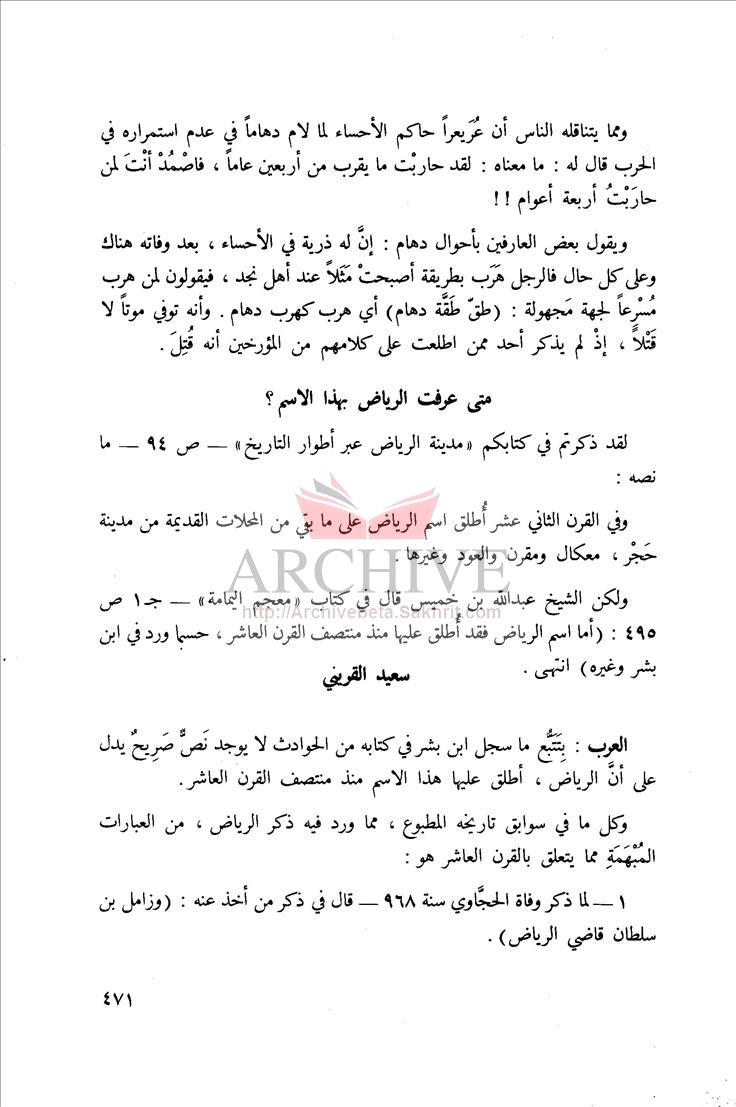 ومما يتناقله الناس أن عُرَيعراً حاكم الأحساء لما لام دهاماً في عدم استمراره في
الحرب قال له : ما معناه : لقد حاربْت ما يقرب من أربعين عاماً ، فاصْمُدْ أنْتَ لمن
حارَبْتُ أربعة أعوام !!
ويقول بعض العارفين بأحوال دهام : إنَّ له ذرية في الأحساء ، بعد وفاته هناك
وعلى كل حال فالرجل هَرَب بطريقة أصبحتْ مَثَلاً عند أهل نجد ، فيقولون لمن هرب
مُسْرِعاً لجهة مَجهولة : (طقّ طَقَّة دهام) أي هرب كهرب دهام . وأنه توفي موتاً لا
قَتْلاً ، إذْ لم يذكر أحد ممن اطلعت على كلامهم من المؤرخين أنه قُتِلَ .
متى عرفت الرياض بهذا الاسم ؟
لقد ذكرتم في كتابكم «مدينة الرياض عبر أطوار التاريخ» — ص ٩٤ — ما
نصه :
وفي القرن الثاني عشر أُطلق اسم الرياض على ما بقي من المحلات القديمة من مدينة
حَجْر ، معكال ومقرن والعود وغيرها .
ARCHIVE
ولكن الشيخ عبدالله بن خميس قال في كتاب «معجم اليمامة» — جـ١ ص
http://Archivebeta.Sakhrit.com
٤٩٥ : (أما اسم الرياض فقد أُطلق عليها منذ منتصف القرن العاشر ، حسبما ورد في ابن
بشر وغيره) انتهى .
سعيد القريني
العرب : بِتَتَبُّع ما سجل ابن بشر في كتابه من الحوادث لا يوجد نَصٌّ صَرِيحٌ يدل
على أنَّ الرياض ، أطلق عليها هذا الاسم منذ منتصف القرن العاشر .
وكل ما في سوابق تاريخه المطبوع ، مما ورد فيه ذكر الرياض ، من العبارات
المُبْهَمَةِ مما يتعلق بالقرن العاشر هو :
١ — لما ذكر وفاة الحجَّاوي سنة ٩٦٨ — قال في ذكر من أخذ عنه : (وزامل بن
سلطان قاضي الرياض) .
٤٧١